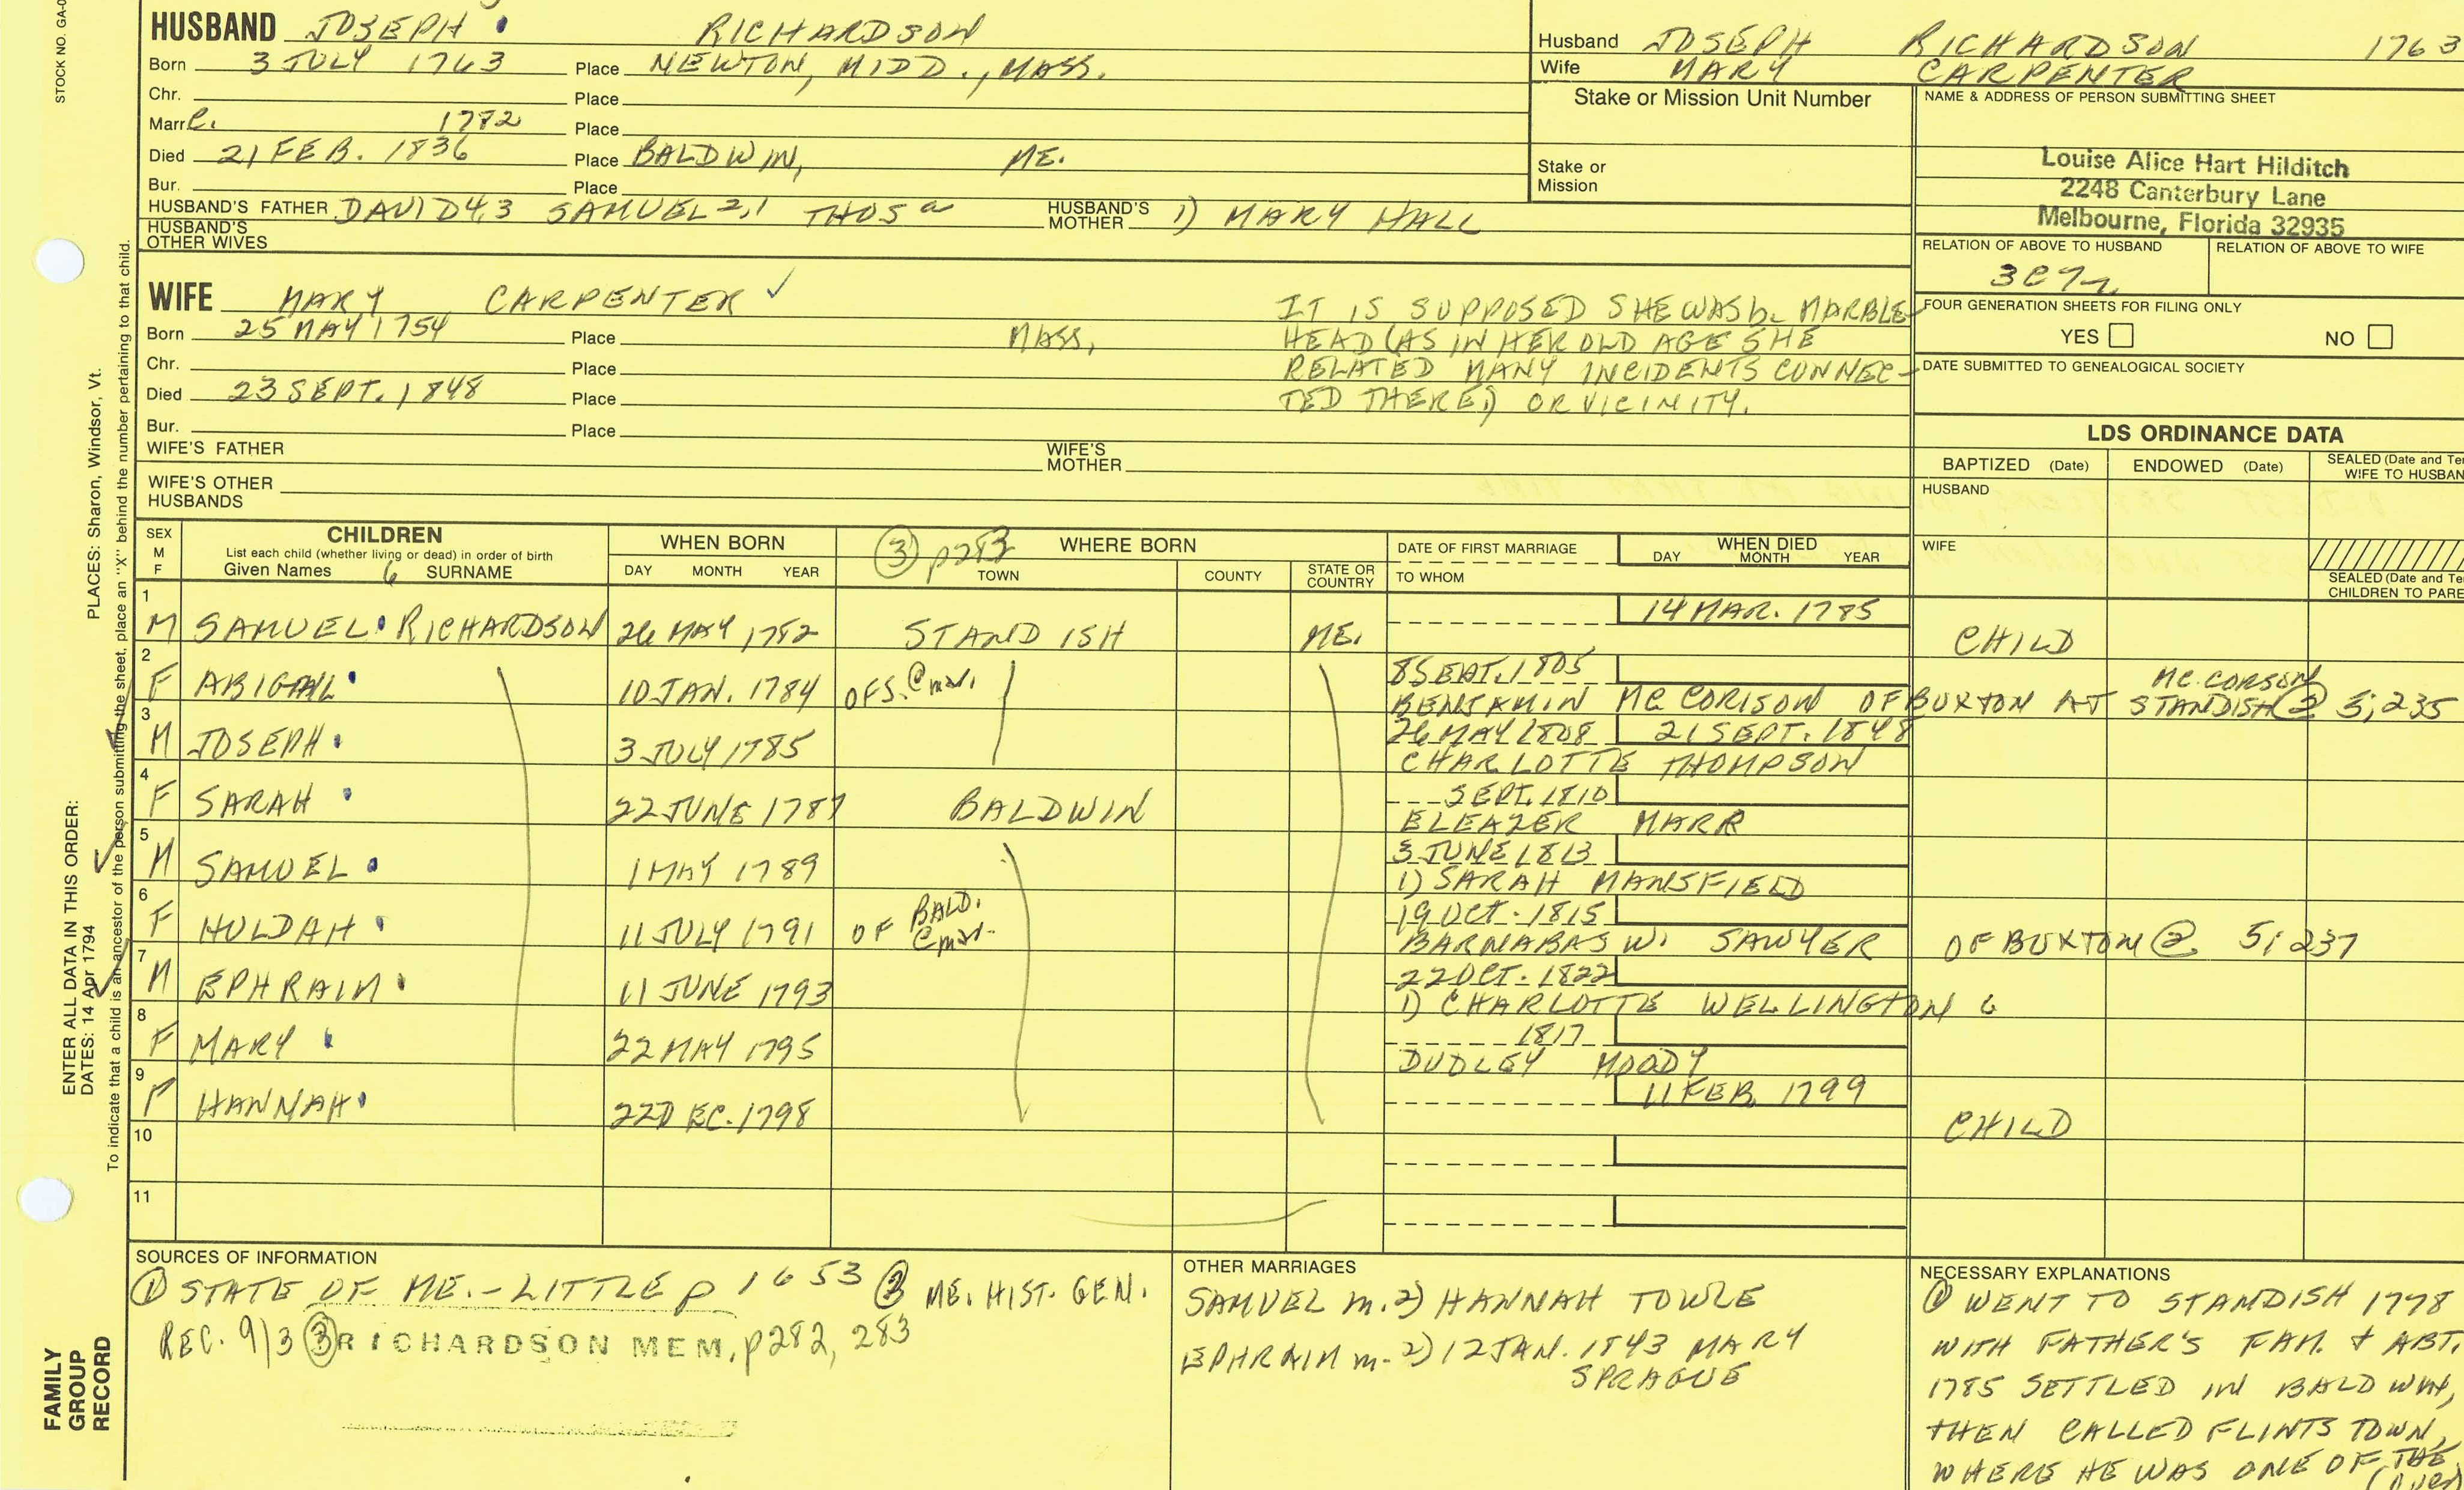 STOCK NO. GA-0
HUSBAND JOSEPH RICHARDSON
Born 3 JULY 1763 Place NEWTON, MIDD., MASS.
Chr. Place
Marr. C. 1782 Place
Died 21 FEB. 1836 Place BALDWIN, ME.
Bur. Place
HUSBAND'S FATHER DAVID 4,3 SAMUEL 2,1 THOS a HUSBAND'S MOTHER 1) MARY HALL
HUSBAND'S OTHER WIVES
Husband JOSEPH RICHARDSON 1763
Wife MARY CARPENTER
Stake or Mission Unit Number
Stake or Mission
NAME & ADDRESS OF PERSON SUBMITTING SHEET
Louise Alice Hart Hilditch
2248 Canterbury Lane
Melbourne, Florida 32935
RELATION OF ABOVE TO HUSBAND RELATION OF ABOVE TO WIFE
FOUR GENERATION SHEETS FOR FILING ONLY
YES NO
DATE SUBMITTED TO GENEALOGICAL SOCIETY
WIFE MARY CARPENTER ✓
Born 25 MAY 1754 Place MASS.
Chr. Place
Died 23 SEPT. 1848 Place
Bur. Place
IT IS SUPPOSED SHE WAS b. MARBLE-
HEAD (AS IN HER OLD AGE SHE
RELATED MANY INCIDENTS CONNEC-
TED THERE) OR VICINITY.
WIFE'S FATHER WIFE'S MOTHER
WIFE'S OTHER HUSBANDS
LDS ORDINANCE DATA
BAPTIZED (Date) ENDOWED (Date) SEALED (Date and Te
WIFE TO HUSBAN
HUSBAND
WIFE
SEALED (Date and Te
CHILDREN TO PARE
SEX M F
CHILDREN
List each child (whether living or dead) in order of birth
Given Names 6 SURNAME
WHEN BORN
DAY MONTH YEAR
③ p283 WHERE BORN
TOWN COUNTY STATE OR COUNTRY
DATE OF FIRST MARRIAGE
TO WHOM
WHEN DIED
DAY MONTH YEAR
1 M SAMUEL RICHARDSON 26 MAY 1782 STANDISH ME. 14 MAR. 1785 CHILD
2 F ABIGAIL 10 JAN. 1784 OF S. @ mar. 8 SEPT. 1805
BENJAMIN MC CORISON OF BUXTON AT STANDISH ② 5;235
MC CORSON
3 M JOSEPH 3 JULY 1785 26 MAY 1808 21 SEPT. 1848
CHARLOTTE THOMPSON
4 F SARAH 22 JUNE 1787 BALDWIN SEPT. 1810
ELEAZER MARR
5 M SAMUEL 1 MAY 1789 3 JUNE 1813
1) SARAH MANSFIELD
6 F HULDAH 11 JULY 1791 OF BALD. @ mar. 19 OCT. 1815
BARNABAS W. SAWYER OF BUXTON ② 5;237
7 M EPHRAIM 11 JUNE 1793 22 OCT. 1822
1) CHARLOTTE WELLINGTON 6
8 F MARY 22 MAY 1795 1817
DUDLEY MOODY
9 F HANNAH 22 DEC. 1798 11 FEB. 1799 CHILD
10
11
SOURCES OF INFORMATION
① STATE OF ME.-LITTLE p 1653 ② ME. HIST. GEN.
REC. 9/3 ③ RICHARDSON MEM, p282, 283
OTHER MARRIAGES
SAMUEL m. 2) HANNAH TOWLE
EPHRAIM m. 2) 12 JAN. 1843 MARY
SPRAGUE
NECESSARY EXPLANATIONS
① WENT TO STANDISH 1778
WITH FATHER'S FAM. + ABT.
1785 SETTLED IN BALDWIN,
THEN CALLED FLINTS TOWN,
WHERE HE WAS ONE OF THE
(over)
ENTER ALL DATA IN THIS ORDER: PLACES: Sharon, Windsor, Vt.
DATES: 14 Apr 1794
To indicate that a child is an ancestor of the person submitting the sheet, place an "X" behind the number pertaining to that child.
FAMILY
GROUP
RECORD